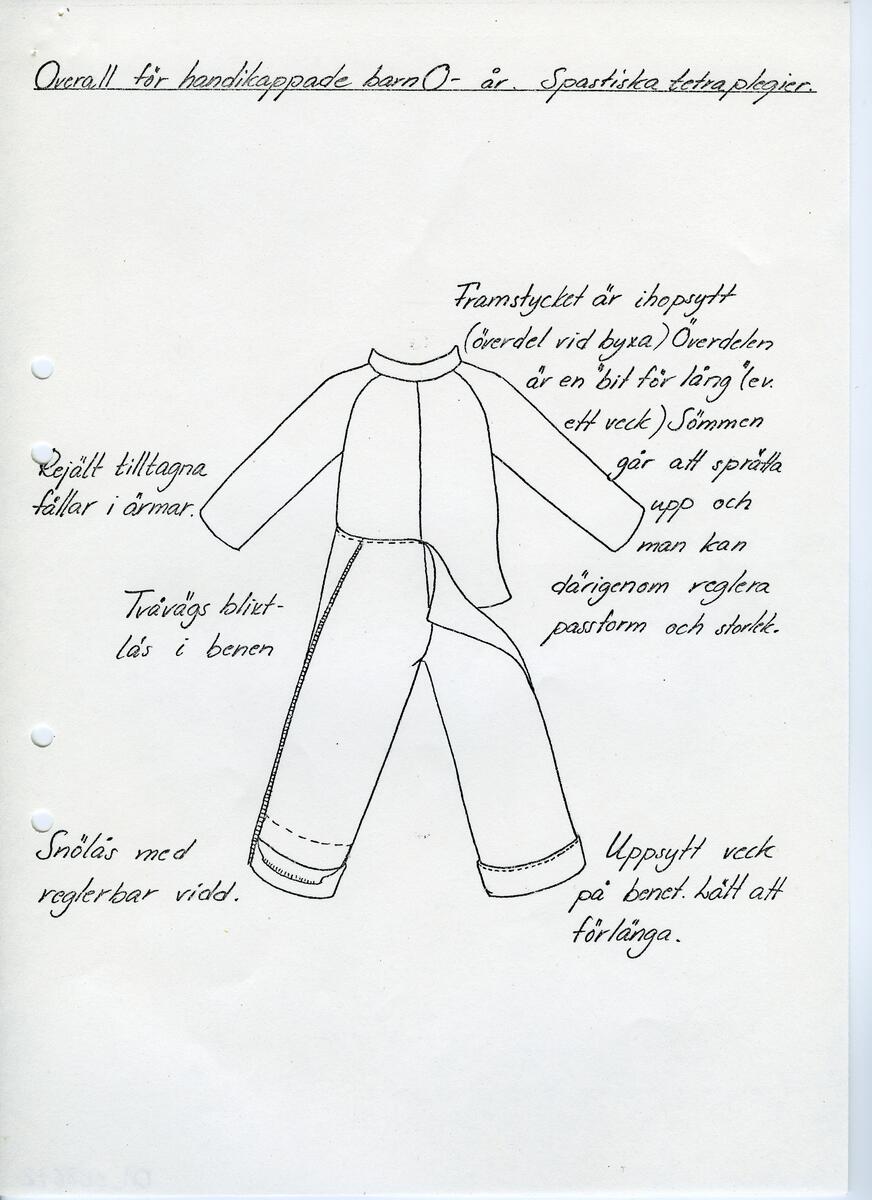 Overall för handikappade barn 0- år. Spastiska tetraplegier.
Framstycket är ihopsytt
(överdel vid byxa) Överdelen
är en "bit för lång" (ev.
ett veck) Sömmen
går att sprätta
upp och
man kan
därigenom reglera
passform och storlek.
Rejält tilltagna
fållar i ärmar.
Tvåvägs blixt-
lås i benen
Snölås med
reglerbar vidd.
Uppsytt veck
på benet. Lätt att
förlänga.